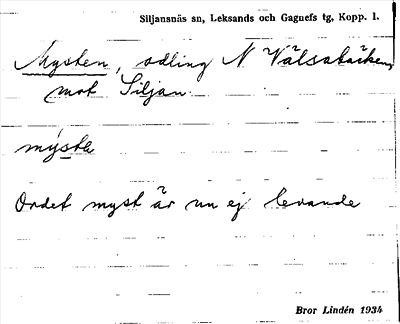 Siljansnäs sn, Leksands och Gagnefs tg, Kopp. l.
Mysten, odling N Välsabäcken,
mot Siljan.
mýstɐ
Ordet myst är nu ej levande
Bror Lindén 1934